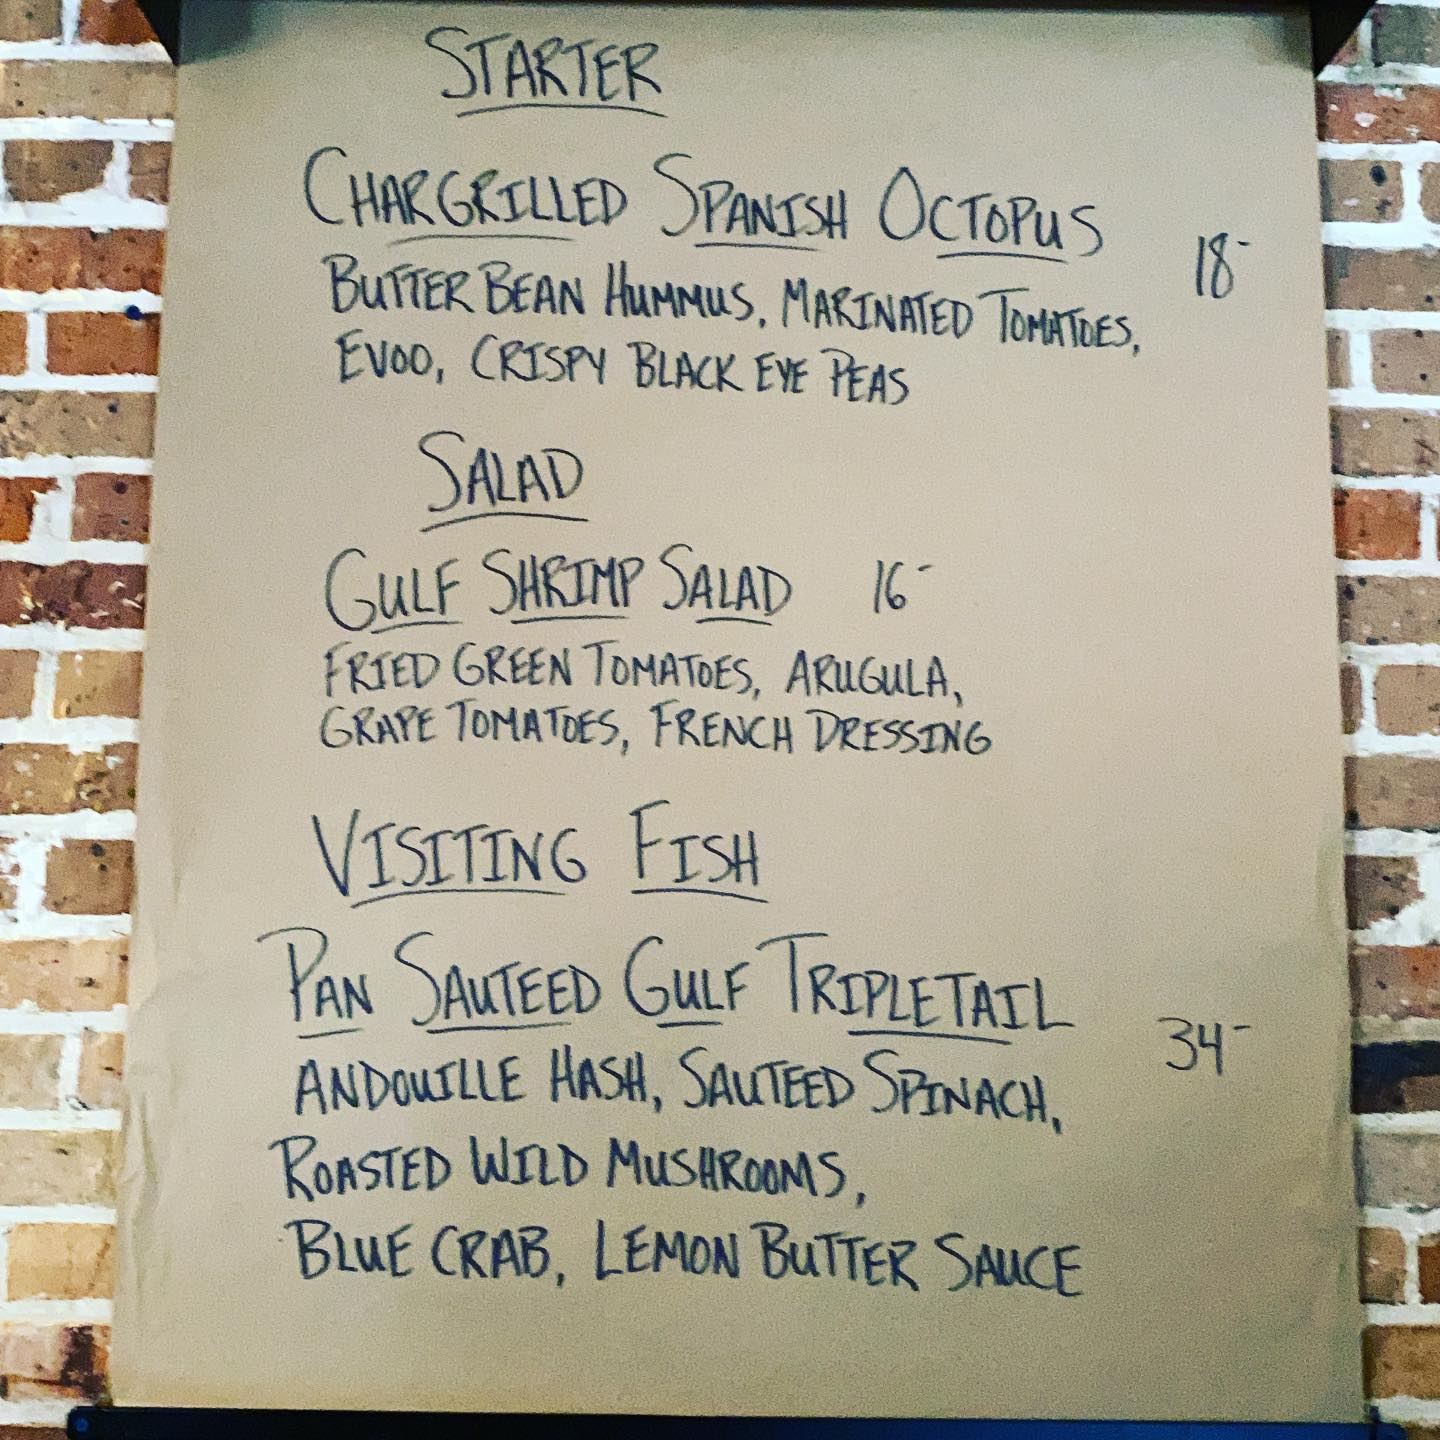 STARTER
CHARGRILLED SPANISH OCTOPUS 18-
BUTTER BEAN HUMMUS, MARINATED TOMATOES,
EVOO, CRISPY BLACK EYE PEAS
SALAD
GULF SHRIMP SALAD 16-
FRIED GREEN TOMATOES, ARUGULA,
GRAPE TOMATOES, FRENCH DRESSING
VISITING FISH
PAN SAUTEED GULF TRIPLETAIL 34-
ANDOUILLE HASH, SAUTEED SPINACH,
ROASTED WILD MUSHROOMS,
BLUE CRAB, LEMON BUTTER SAUCE